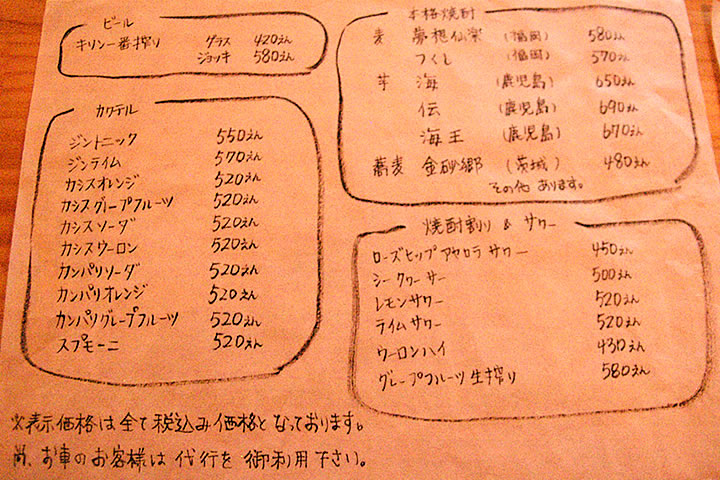 ビール
キリン一番搾り グラス 420えん
ジョッキ 580えん
カクテル
ジントニック 550えん
ジンライム 570えん
カシスオレンジ 520えん
カシスグープフルーツ 520えん
カシスソーダ 520えん
カシスウーロン 520えん
カンパリソーダ 520えん
カンパリオレンジ 520えん
カンパリグレープフルーツ 520えん
スプモーニ 520えん
本格焼酎
麦 夢想仙楽 (福岡) 580えん
つくし (福岡) 570えん
芋 海 (鹿児島) 650えん
伝 (鹿児島) 690えん
海王 (鹿児島) 670えん
蕎麦 金砂郷 (茨城) 480えん
その他 あります。
焼酎割り & サワー
ローズヒップアセロラサワー 450えん
シークヮーサー 500えん
レモンサワー 520えん
ライムサワー 520えん
ウーロンハイ 430えん
グレープフルーツ生搾り 580えん
※表示価格は全て税込み価格となっております。
尚、お車のお客様は代行を御利用下さい。